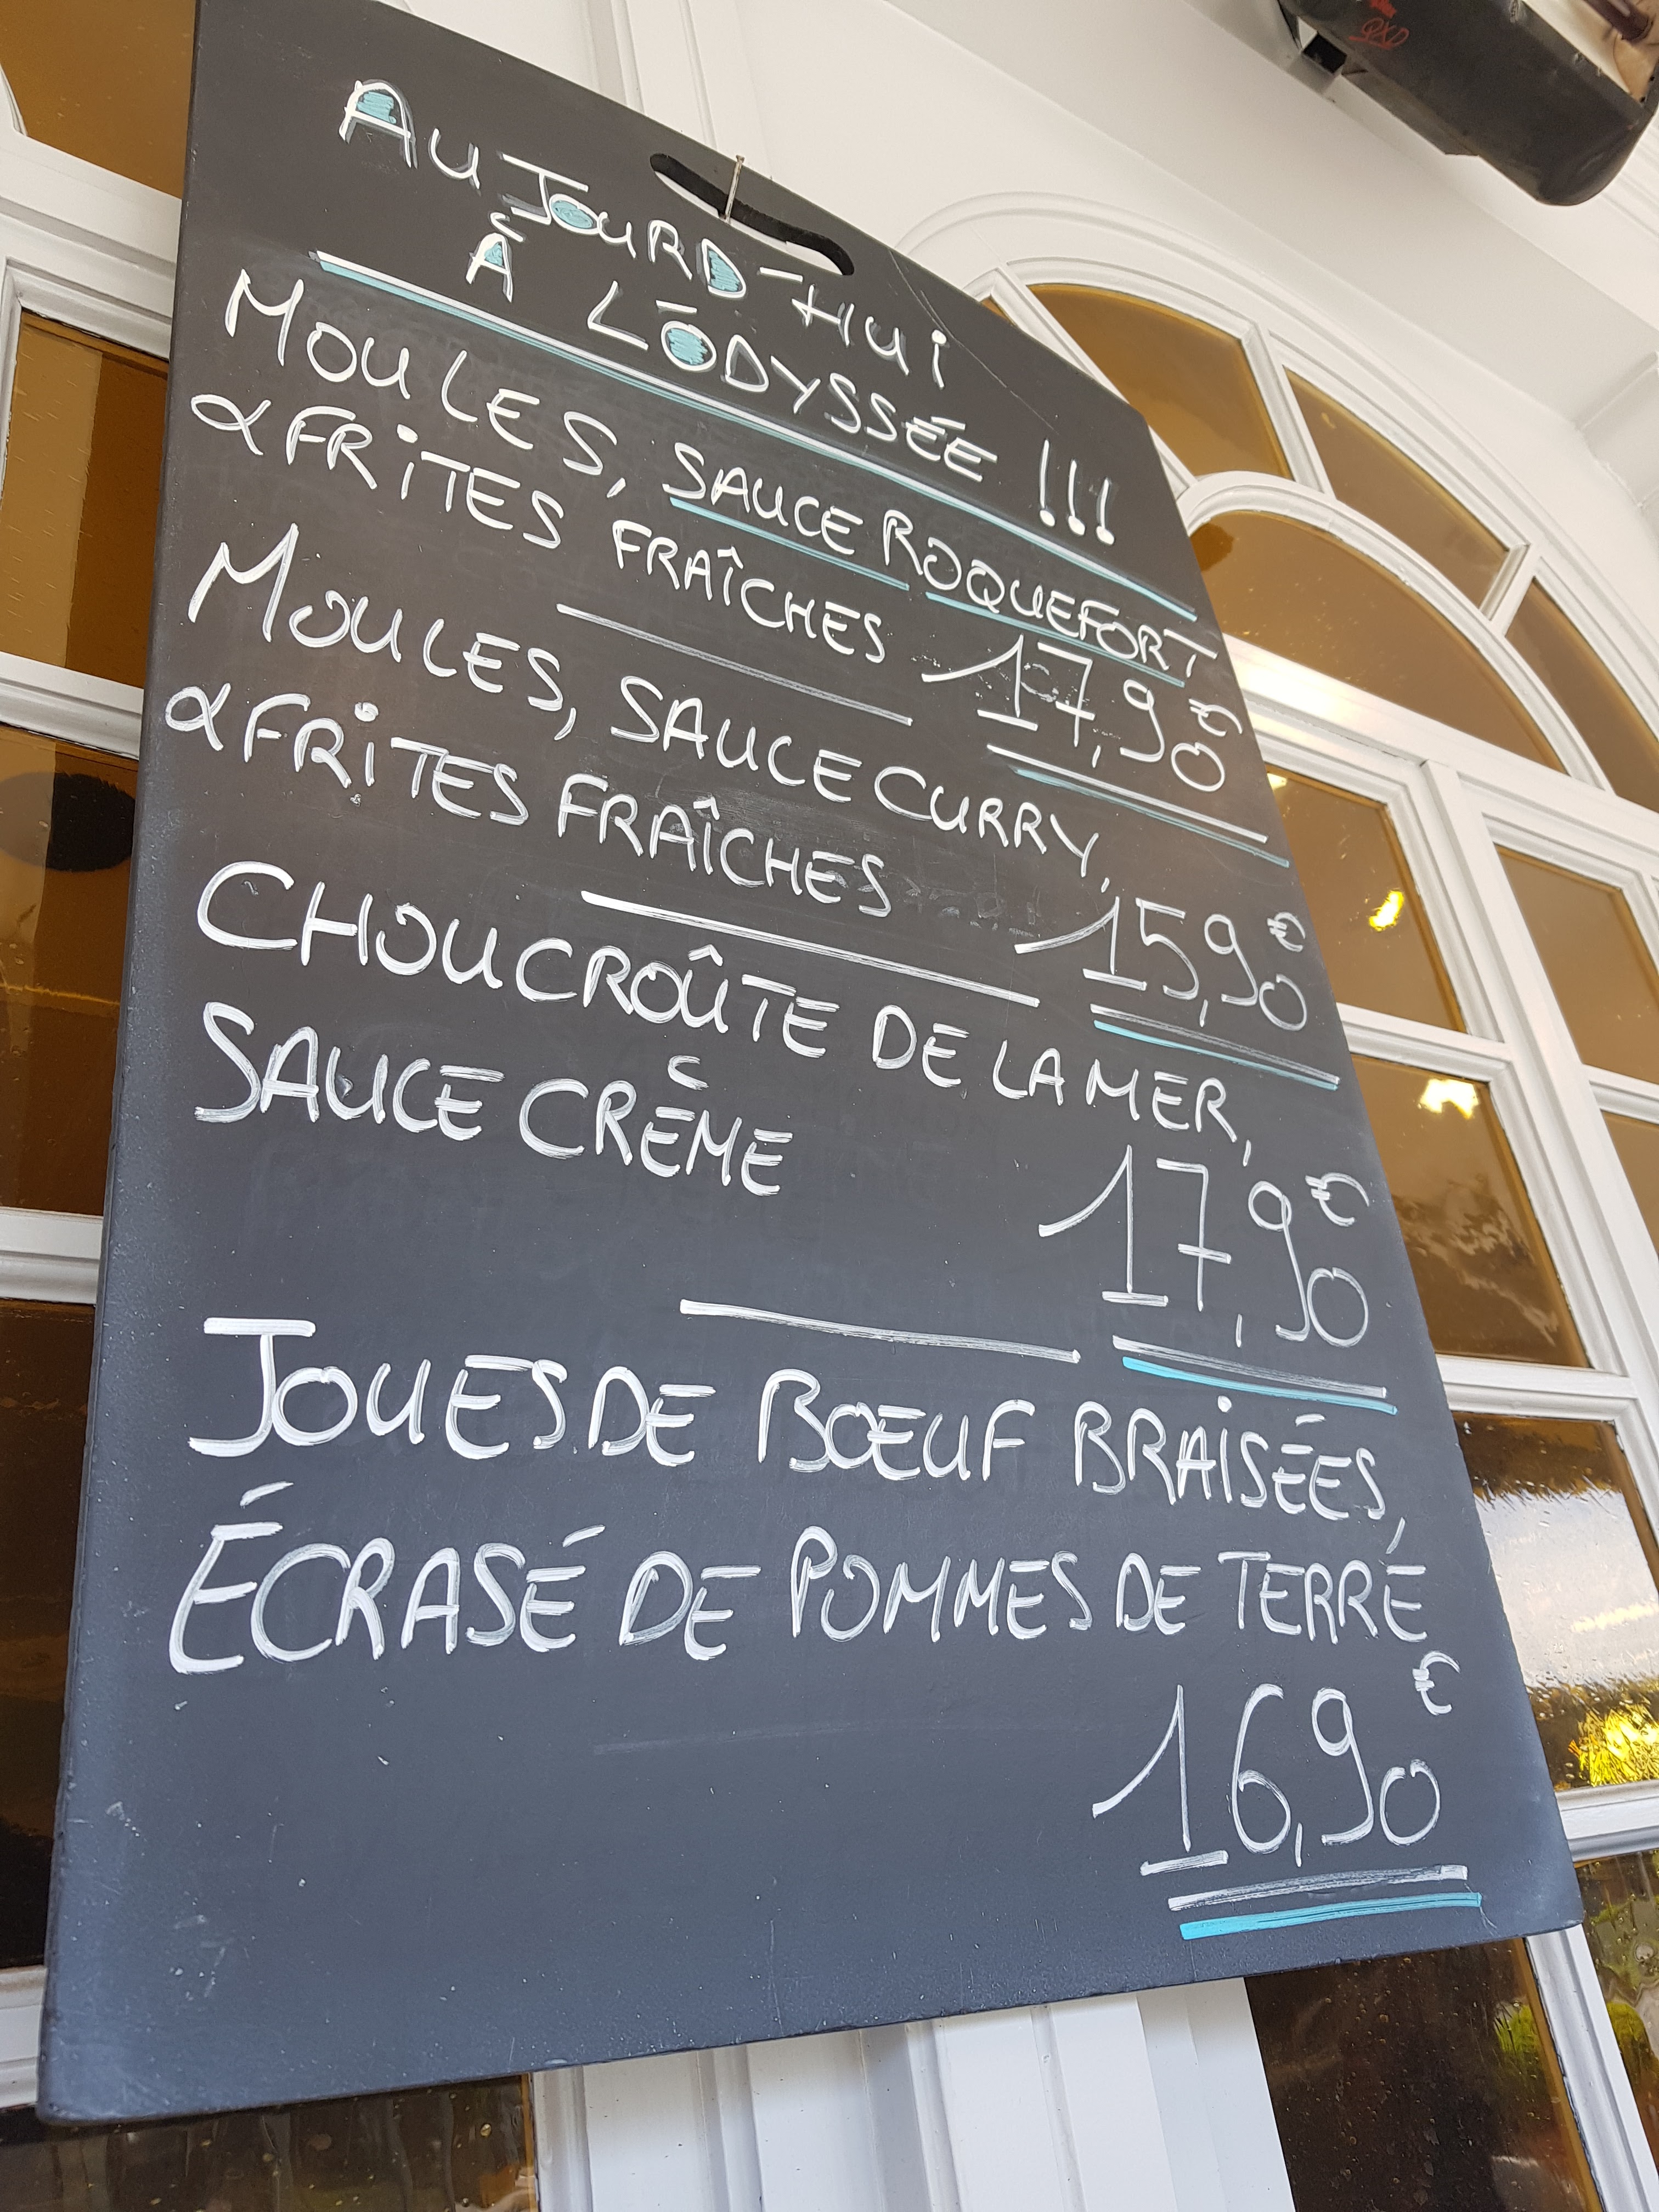 AUJOURD'HUI
À L'ODYSSÉE !!!
MOULES, SAUCE ROQUEFORT
& FRITES FRAÎCHES 17,90€
MOULES, SAUCE CURRY,
& FRITES FRAÎCHES 15,90€
CHOUCROÛTE DE LA MER,
SAUCE CRÈME
17,90€
JOUES DE BŒUF BRAISÉES,
ÉCRASÉ DE POMMES DE TERRE
16,90€